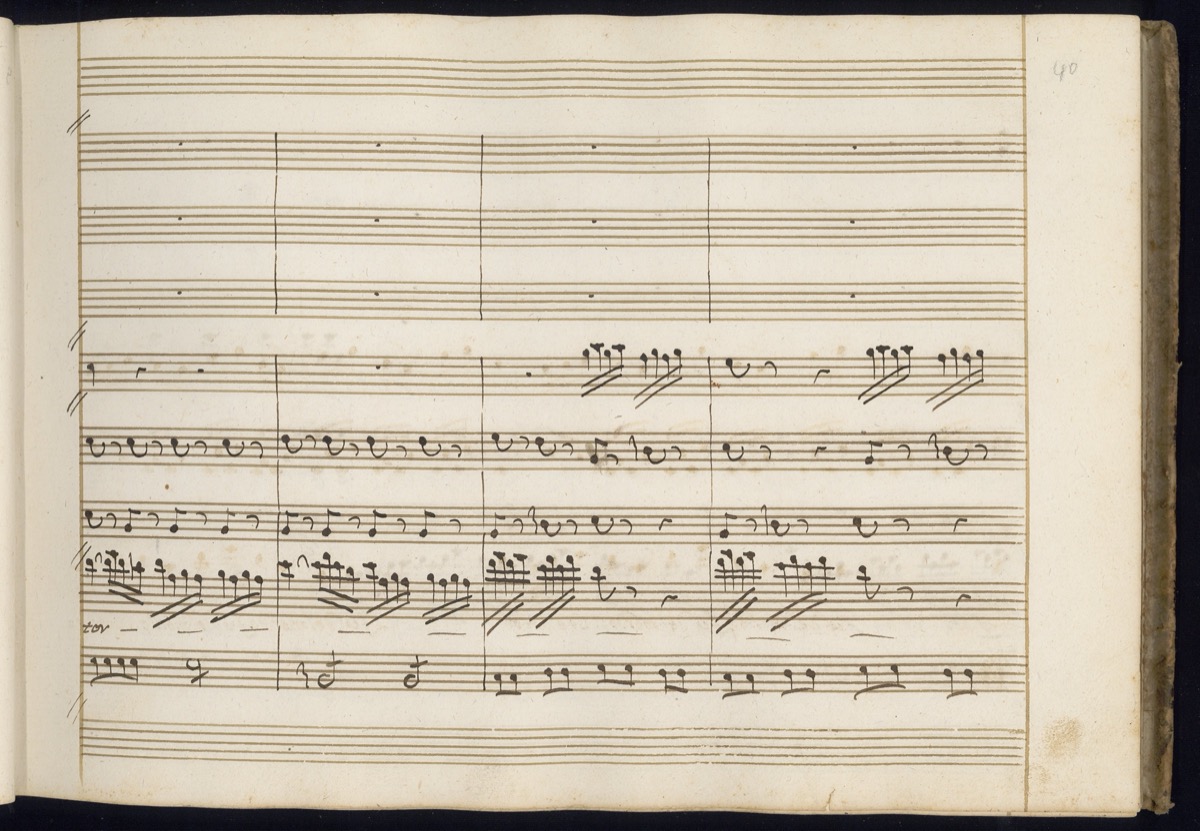 40
tor